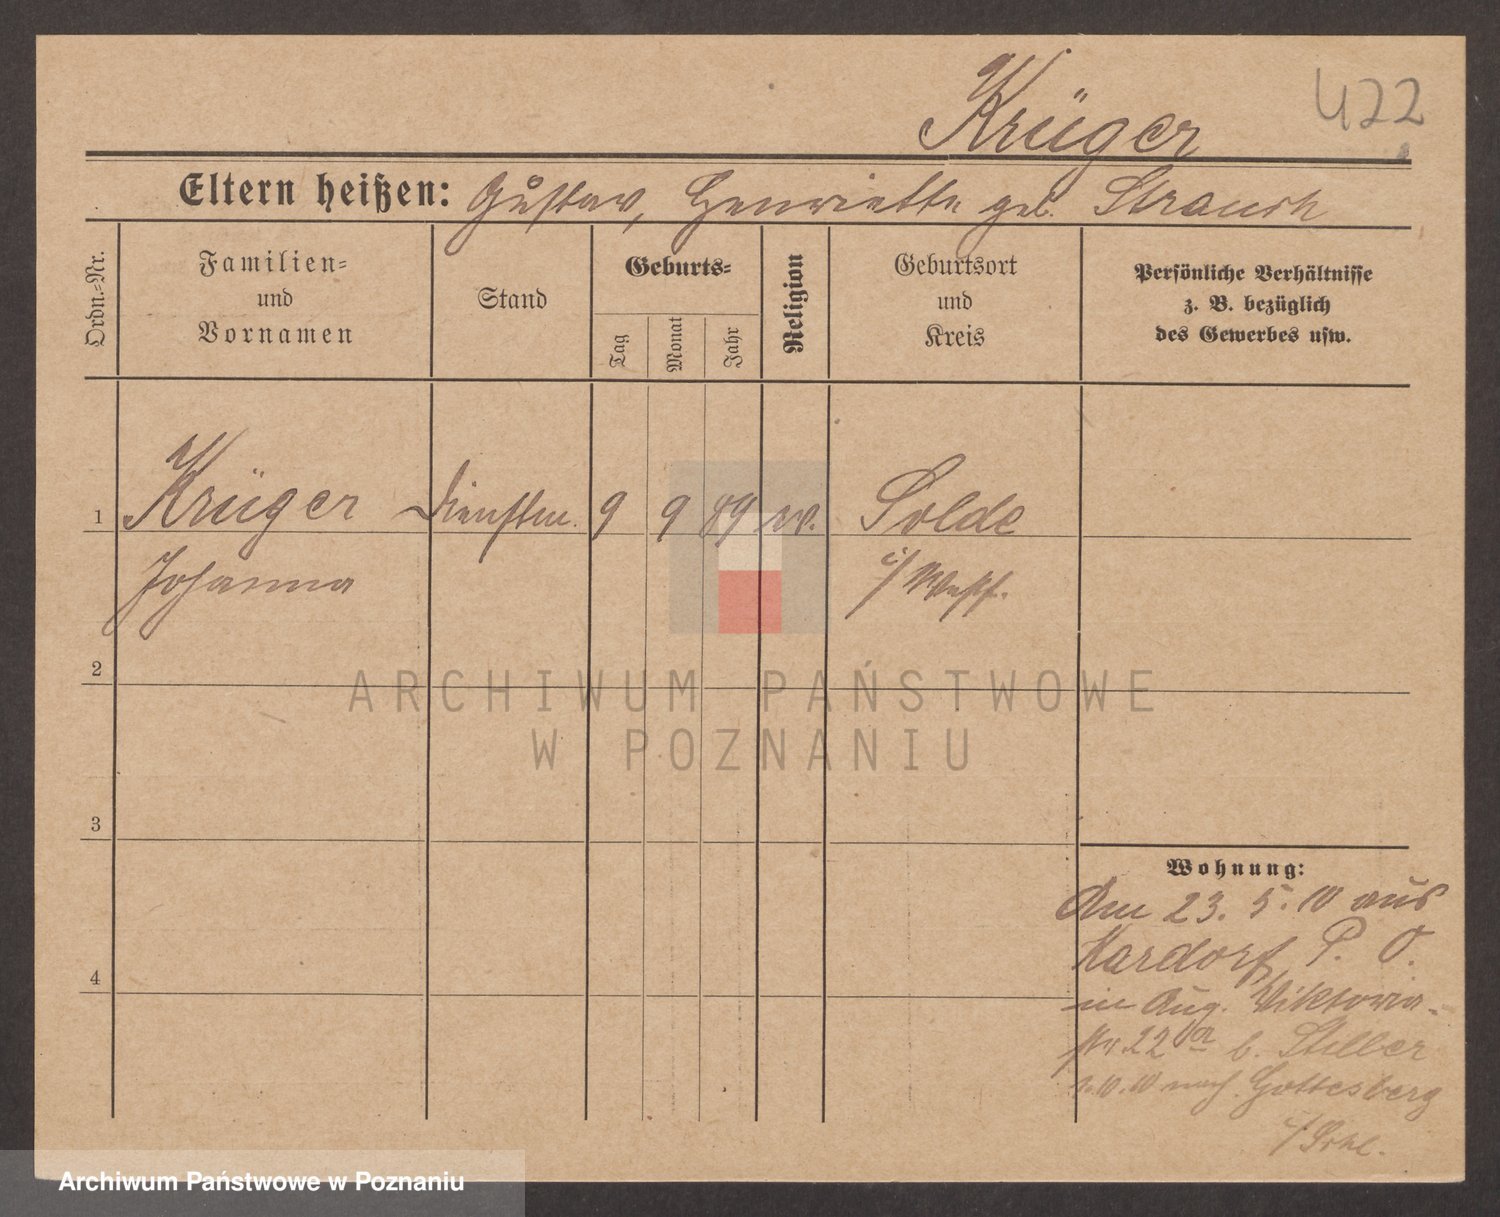 422
Krüger
Eltern heißen: Gustav, Henriette geb. Strauch
Ordn.-Nr.
Familien-
und
Vornamen
Stand
Geburts-
Tag
Monat
Jahr
Religion
Geburtsort
und
Kreis
Persönliche Verhältnisse
z. B. bezüglich
des Gewerbes usw.
1 Krüger Dienstm. 9 9 89 ev. Solde
Johanna i/ Westf.
2
ARCHIWUM PAŃSTWOWE
W POZNANIU
3
Wohnung:
Am 23. 5. 10 aus
Kardorf, P. O.
4
in Aug. Viktoria-
str 22 a b. Stiller
10. 10 nach Gottesberg
i/ Schl.
Archiwum Państwowe w Poznaniu